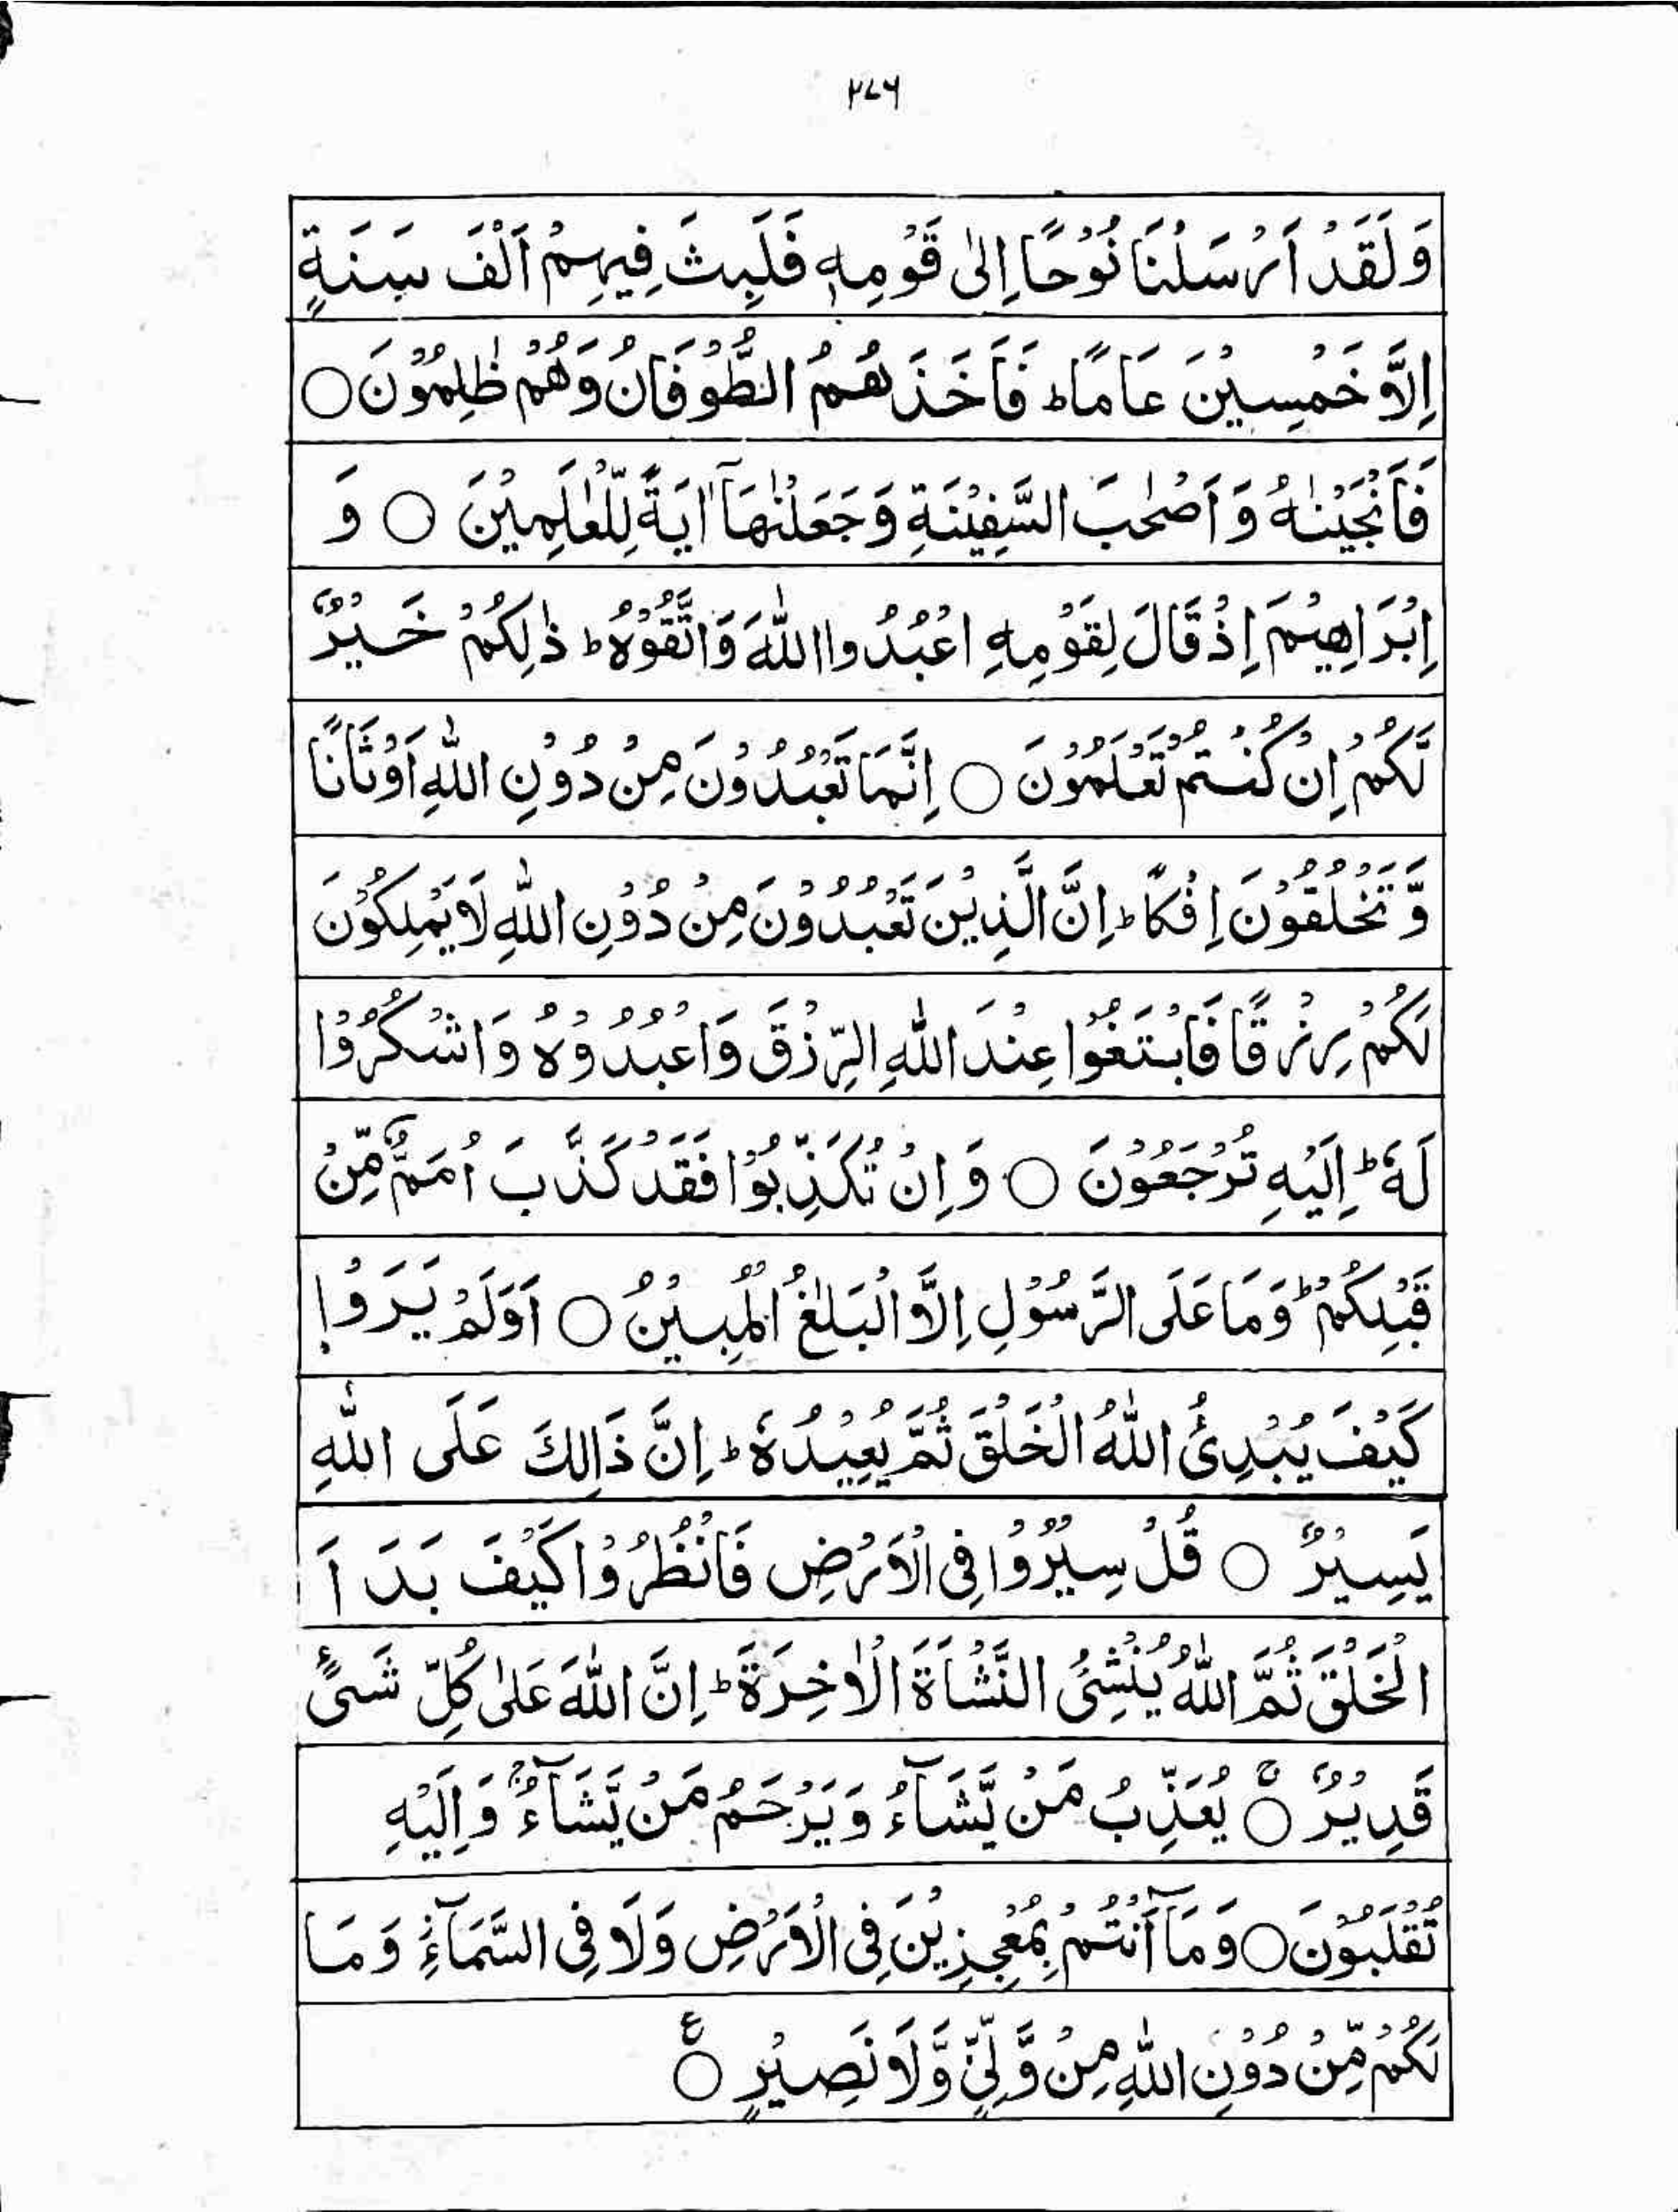 ۲۷۶
وَلَقَدْ اَرْسَلْنَا نُوْحًا اِلٰی قَوْمِهٖ فَلَبِثَ فِیْهِمْ اَلْفَ سَنَةٍ
اِلَّا خَمْسِیْنَ عَامًا ؕ فَاَخَذَهُمُ الطُّوْفَانُ وَهُمْ ظٰلِمُوْنَ ○
فَاَنْجَیْنٰهُ وَ اَصْحٰبَ السَّفِیْنَةِ وَجَعَلْنٰهَاۤ اٰیَةً لِّلْعٰلَمِیْنَ ○ وَ
اِبْرَاهِیْمَ اِذْ قَالَ لِقَوْمِهِ اعْبُدُوا اللّٰهَ وَاتَّقُوْهُ ؕ ذٰلِكُمْ خَیْرٌ
لَّكُمْ اِنْ كُنْتُمْ تَعْلَمُوْنَ ○ اِنَّمَا تَعْبُدُوْنَ مِنْ دُوْنِ اللّٰهِ اَوْثَانًا
وَّ تَخْلُقُوْنَ اِفْكًا ؕ اِنَّ الَّذِیْنَ تَعْبُدُوْنَ مِنْ دُوْنِ اللّٰهِ لَا یَمْلِكُوْنَ
لَكُمْ رِزْقًا فَابْتَغُوْا عِنْدَ اللّٰهِ الرِّزْقَ وَاعْبُدُوْهُ وَاشْكُرُوْا
لَهٗ ؕ اِلَیْهِ تُرْجَعُوْنَ ○ وَ اِنْ تُكَذِّبُوْا فَقَدْ كَذَّبَ اُمَمٌ مِّنْ
قَبْلِكُمْ ؕ وَمَا عَلَی الرَّسُوْلِ اِلَّا الْبَلٰغُ الْمُبِیْنُ ○ اَوَلَمْ یَرَوْا
كَیْفَ یُبْدِئُ اللّٰهُ الْخَلْقَ ثُمَّ یُعِیْدُهٗ ؕ اِنَّ ذَالِكَ عَلَی اللّٰهِ
یَسِیْرٌ ○ قُلْ سِیْرُوْا فِی الْاَرْضِ فَانْظُرُوْا كَیْفَ بَدَ اَ
الْخَلْقَ ثُمَّ اللّٰهُ یُنْشِئُ النَّشْاَةَ الْاٰخِرَةَ ؕ اِنَّ اللّٰهَ عَلٰی كُلِّ شَیْءٍ
قَدِیْرٌ ○ یُعَذِّبُ مَنْ یَّشَآءُ وَ یَرْحَمُ مَنْ یَّشَآءُ ۚ وَ اِلَیْهِ
تُقْلَبُوْنَ ○ وَ مَاۤ اَنْتُمْ بِمُعْجِزِیْنَ فِی الْاَرْضِ وَلَا فِی السَّمَآءِ ؗ وَ مَا
لَكُمْ مِّنْ دُوْنِ اللّٰهِ مِنْ وَّلِیٍّ وَّلَا نَصِیْرٍ ○ ع